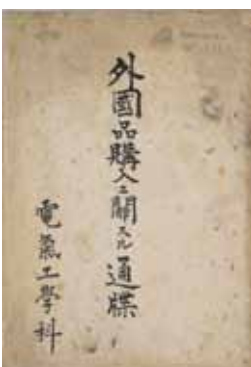 外國品購入ニ關スル通牒
電氣工學科